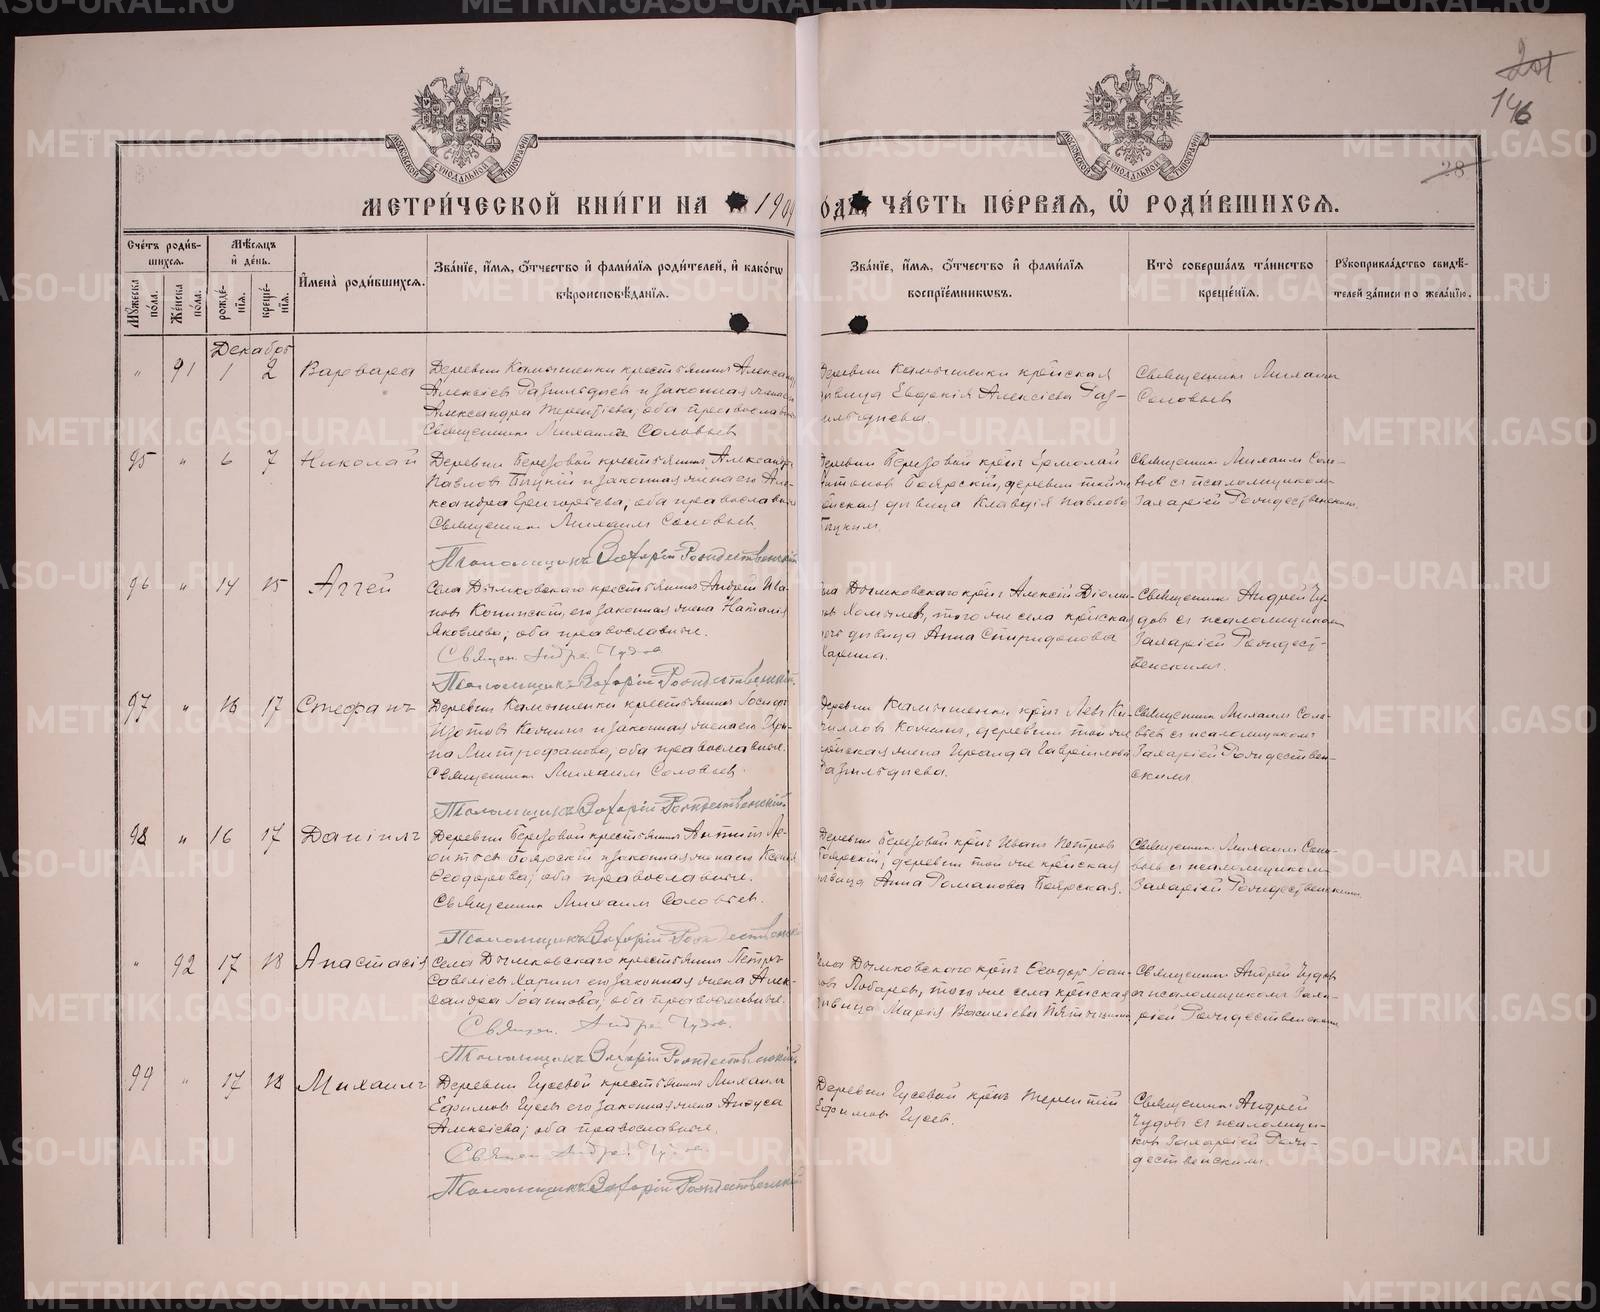 201
146
28
МОСКОВСКОЙ СѴНОДАЛЬНОЙ ТИПОГРАФІИ
МОСКОВСКОЙ СѴНОДАЛЬНОЙ ТИПОГРАФІИ
МЕТРИ́ЧЕСКОЙ КНИ́ГИ НА 190 ОДЪ, ЧА́СТЬ ПЕ́РВАѦ, Ѡ РОДИ́ВШИХСѦ.
Сче́тъ роди́в-
шихсѧ.
Мѣ́сѧцъ
и҆ де́нь.
Мꙋ́жеска
по́ла.
Же́нска
по́ла.
рожде́-
нїѧ.
креще́-
нїѧ.
И҆мена̀ роди́вшихсѧ.
Зва́нїе, и҆́мѧ, ѻ҆́тчество и҆ фами́лїѧ роди́телей, и҆ како́гѡ
вѣроисповѣ́данїѧ.
Зва́нїе, и҆́мѧ, ѻ҆́тчество и҆ фами́лїѧ
воспрїе́мникѡвъ.
Кто̀ соверша́лъ та́инство
креще́нїѧ.
Рꙋкоприкла́дство свидѣ́-
телей за́писи по жела́нїю.
Декабрь
" 91 1 2 Варвара
Деревни Камышенки крестьянинъ Александръ
Алексѣевъ Разильдѣевъ и законная жена его
Александра Терентіева, оба православные
Священникъ Михаилъ Соловьевъ
Деревни Камышенки крест́нская
дѣвица Евдокія Алексѣева Раз-
ильдѣева.
Священникъ Михаилъ
Соловьевъ
95 " 6 7 Николай
Деревни Березовой крестьянинъ Александръ
Павловъ и законная жена его Але-
ксандра Григорьева, оба православные
Священникъ Михаилъ Соловьевъ.
Псаломщикъ Захарій Рождественскій
Деревни Березовой крест́нъ Ермолай
Антоновъ Боярскій, деревни той же
дѣвица Клавдія Павлова
Священникъ Михаилъ Соло-
вьевъ съ псаломщикомъ
Захаріей Рождественскимъ
96 " 14 15 Аггей
Села Дымковскаго крестьянинъ Андрей Ива-
новъ, его законная жена Наталія
Яковлева, оба православные.
Священ. Андрей Чудов
Псаломщикъ Захарій Рождественскій.
Села Дымковскаго крест́нъ Алексій
того же села
дѣвица Анна Спиридонова
Харина.
Священникъ Андрей Чу-
довъ съ псаломщикомъ
Захаріей Рождест-
венскимъ.
97 " 16 17 Стефанъ
Деревни Камышенки крестьянинъ
Изотовъ и законная жена его Ири-
на Митрофанова, оба православные.
Священникъ Михаилъ Соловьевъ.
Псаломщикъ Захарій Рождественскій.
Деревни Камышенки крест́нъ Левъ Ки-
рилловъ, деревни той же
жена Ираида Гавріилова
Разильдѣева.
Священникъ Михаилъ Соло-
вьевъ съ псаломщикомъ
Захаріей Рождествен-
скимъ
98 " 16 17 Даніилъ
Деревни Березовой крестьянинъ Ле-
онтьевъ Боярскій и законная жена его Ксенія
Ѳеодорова; оба православные.
Священникъ Михаилъ Соловьевъ.
Псаломщикъ Захарій Рождественскій
Деревни Березовой крест́нъ Иванъ Петровъ
Боярскій; деревни той же
дѣвица Анна Романова Боярская.
Священникъ Михаилъ Соло-
вьевъ съ псаломщикомъ
Захаріей Рождественскимъ.
" 92 17 18 Анастасія
Села Дымковскаго крестьянинъ Петръ
Савеліевъ Харинъ его законная жена Алек-
сандра Іоаннова, оба православные.
Священ. Андрей Чудов.
Псаломщикъ Захарій Рождественскій
Села Дымковскаго крест́нъ Ѳеодоръ Іоан-
новъ, того же села
дѣвица Марія Василіева
Священникъ Андрей Чудовъ
съ псаломщикомъ Заха-
ріей Рождественскимъ
99 " 17 18 Михаилъ
Деревни Гусевой крестьянинъ Михаилъ
Ефимовъ Гусевъ его законная жена Анфуса
Алексіева; оба православные.
Священ Андрей Чудов
Псаломщикъ Захарій Рождественскій
Деревни Гусевой крест́нъ Терентій
Ефимовъ Гусевъ.
Священникъ Андрей
Чудовъ съ псаломщи-
комъ Захаріей Рож-
дественскимъ.
METRIKI.GASO-URAL.RU